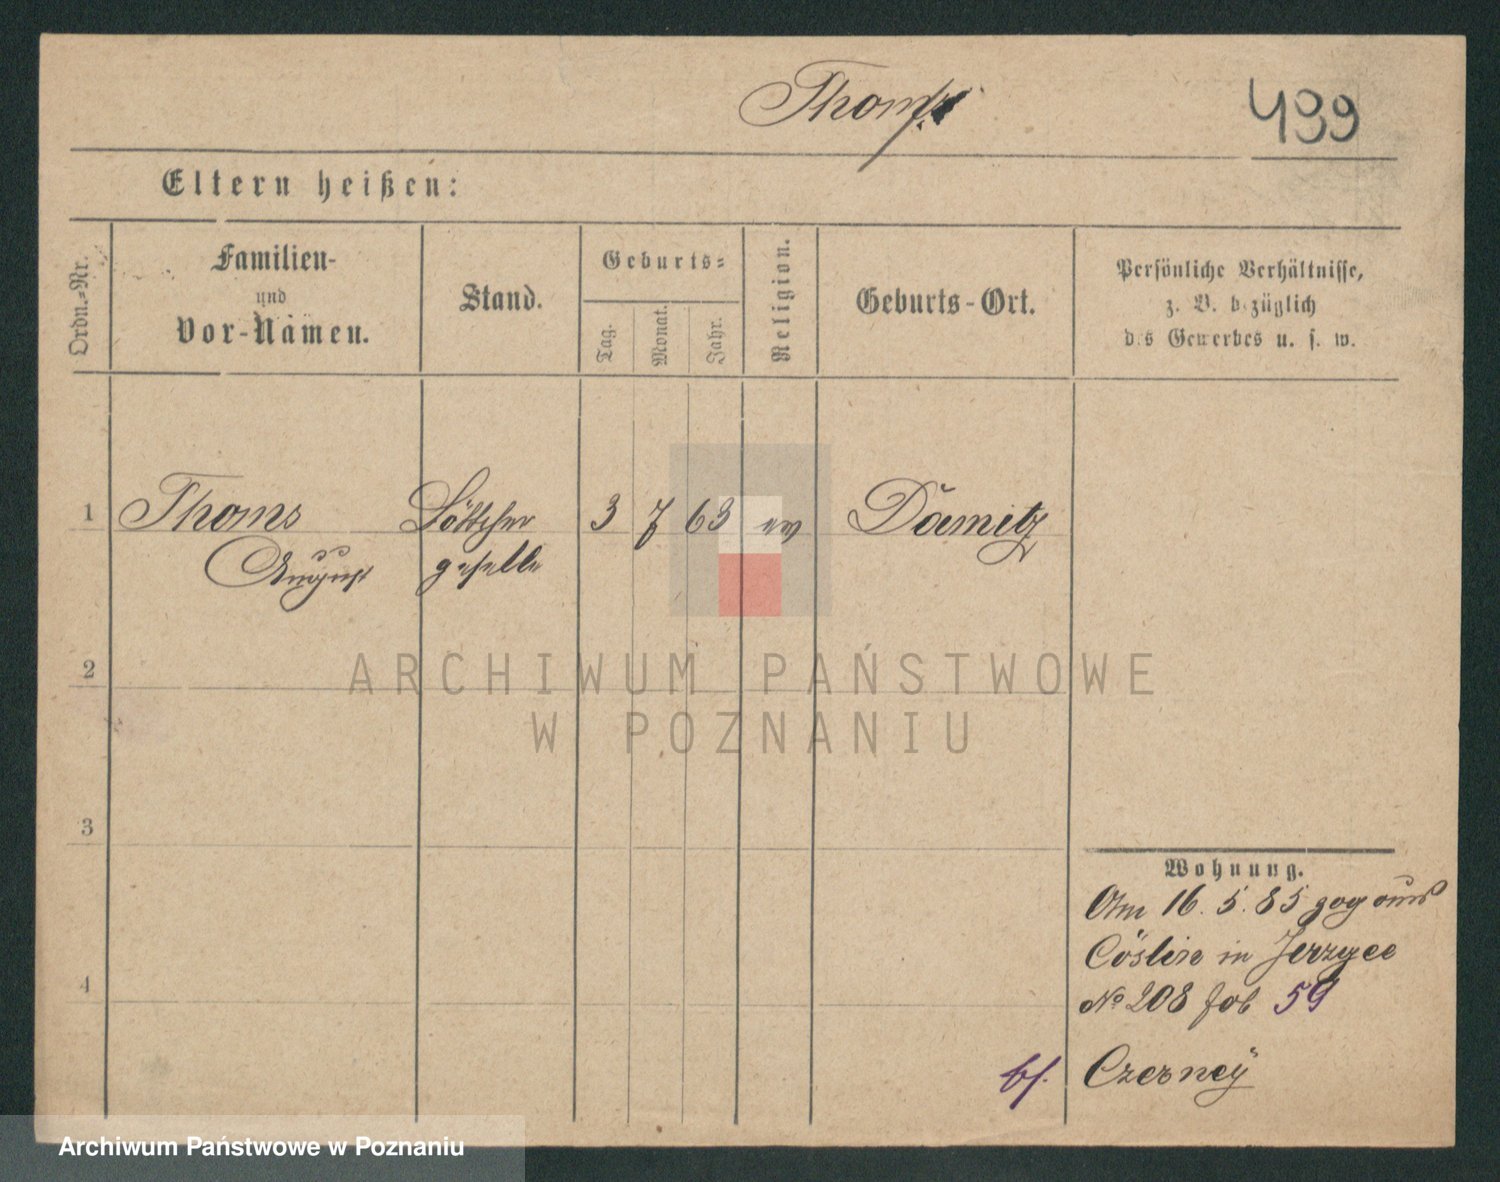 Thoms
499
Eltern heißen:
Ordn.-Nr.
Familien-
und
Vor-Namen.
Stand.
Geburts-
Tag.
Monat.
Jahr.
Religion.
Geburts-Ort.
Persönliche Verhältnisse,
z. B. bezüglich
des Gewerbes u. s. w.
1 Thoms Böttcher 3 7 63 ev Damitz
August geselle
2
ARCHIWUM PAŃSTWOWE
W POZNANIU
3
Wohnung.
Am 16. 5. 85 zog aus
Cöslin in Jerzyce
No 208 59
4
bf. Czerney
Archiwum Państwowe w Poznaniu